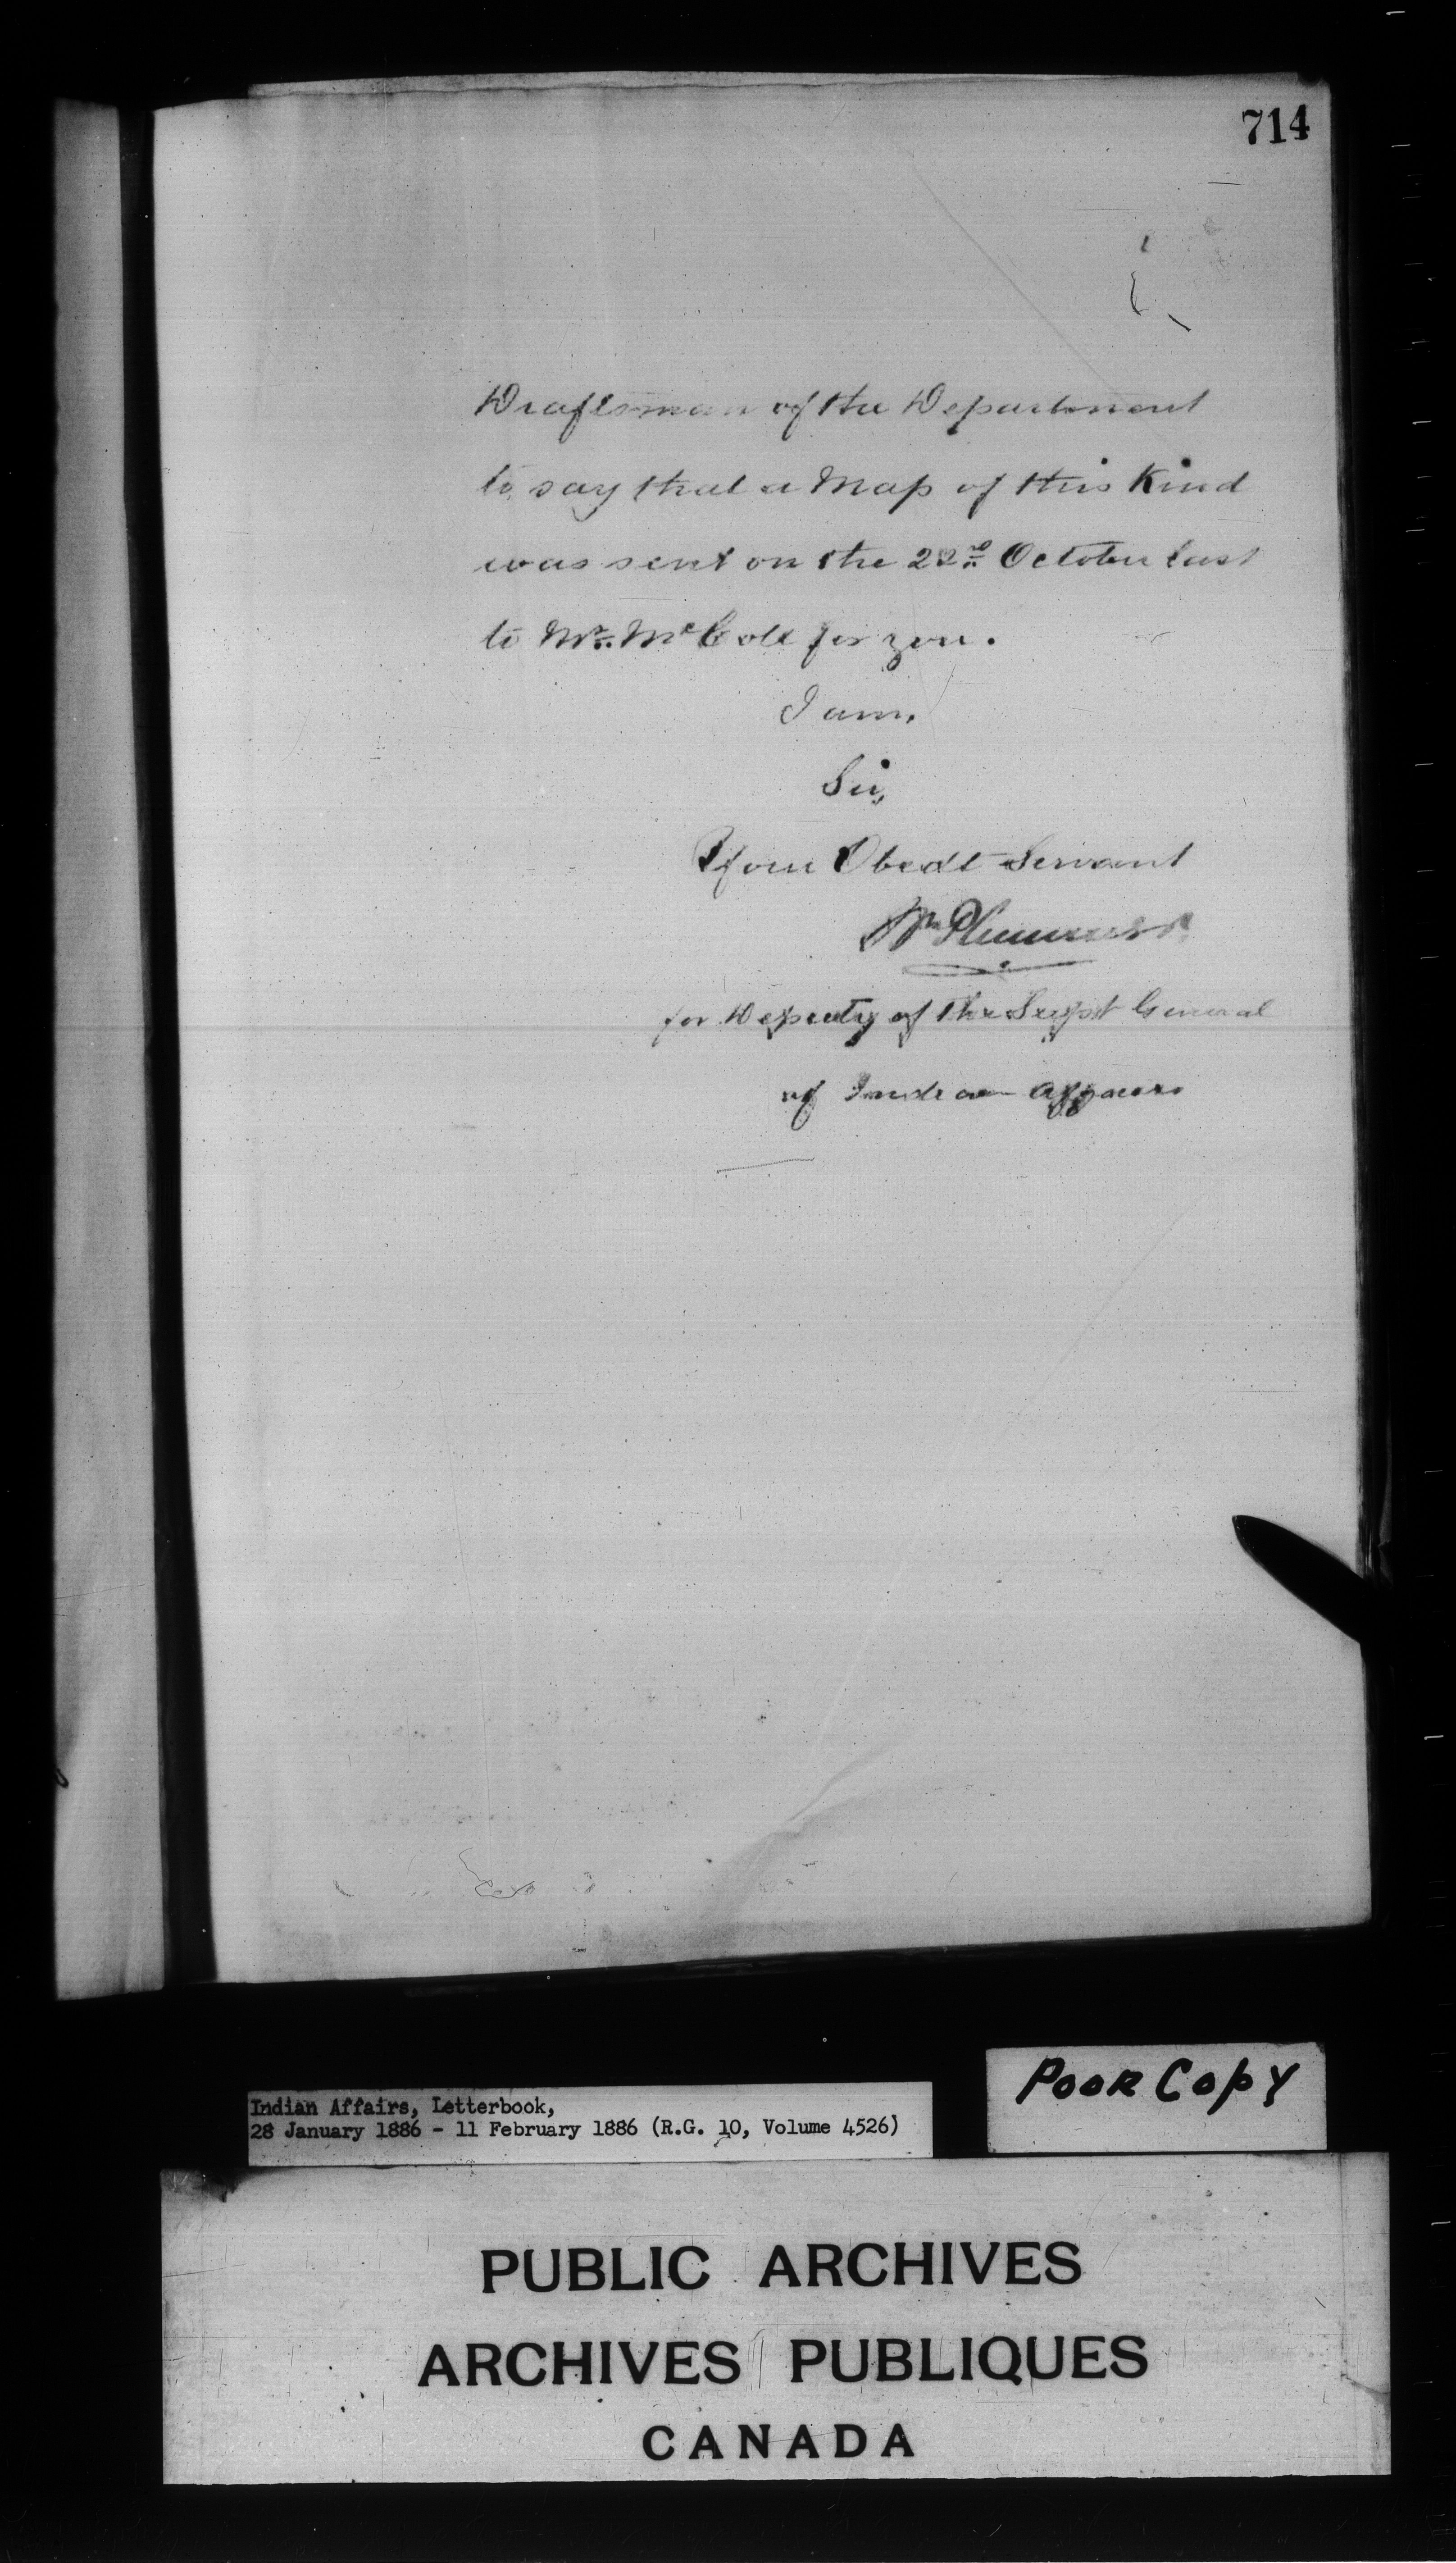 714
Draftsman of the Department
to say that a Map of this Kind
was sent on the 22nd October last
to Mr. McColl for you.
I am,
Sir,
Your Obedt Servant
Wm Plummer
for Deputy of the Supt General
of Indian Affairs
Poor Copy
Indian Affairs, Letterbook,
28 January 1886 - 11 February 1886 (R.G. 10, Volume 4526)
PUBLIC ARCHIVES
ARCHIVES PUBLIQUES
CANADA